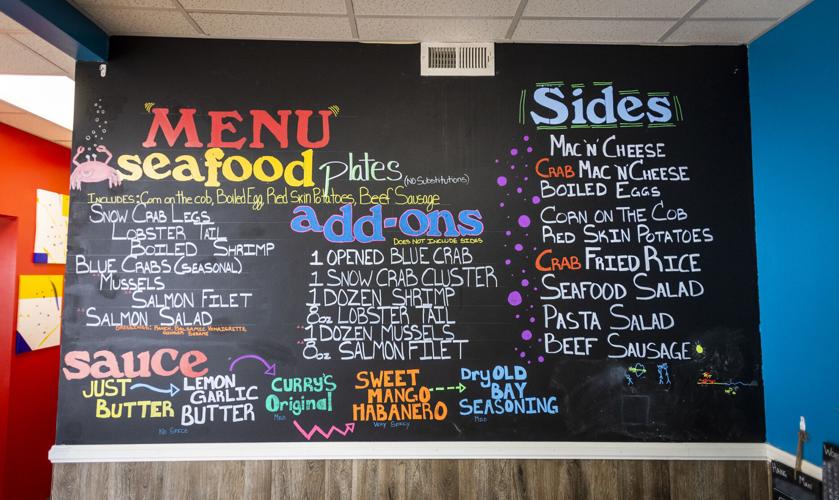 MENU
seafood plates (NO Substitutions)
INCLUDES: Corn on the cob, Boiled Egg, Red Skin Potatoes, Beef Sausage
SNOW CRAB LEGS
LOBSTER TAIL
BOILED SHRIMP
BLUE CRABS (SEASONAL)
MUSSELS
SALMON FILET
SALMON SALAD
DRESSINGS: RANCH, BALSAMIC VINAIGRETTE,
GINGER SESAME
add-ons
DOES NOT INCLUDE SIDES
1 OPENED BLUE CRAB
1 SNOW CRAB CLUSTER
1 DOZEN SHRIMP
8oz LOBSTER TAIL
1 DOZEN MUSSELS
8oz SALMON FILET
Sides
MAC'N'CHEESE
CRAB MAC'N'CHEESE
BOILED EGGS
CORN ON THE COB
RED SKIN POTATOES
CRAB FRIED RICE
SEAFOOD SALAD
PASTA SALAD
BEEF SAUSAGE
sauce
JUST
BUTTER
LEMON
GARLIC
BUTTER
NO SPICE
CURRY'S
Original
MED
SWEET
MANGO
HABANERO
VERY SPICY
Dry OLD
BAY
SEASONING
MED